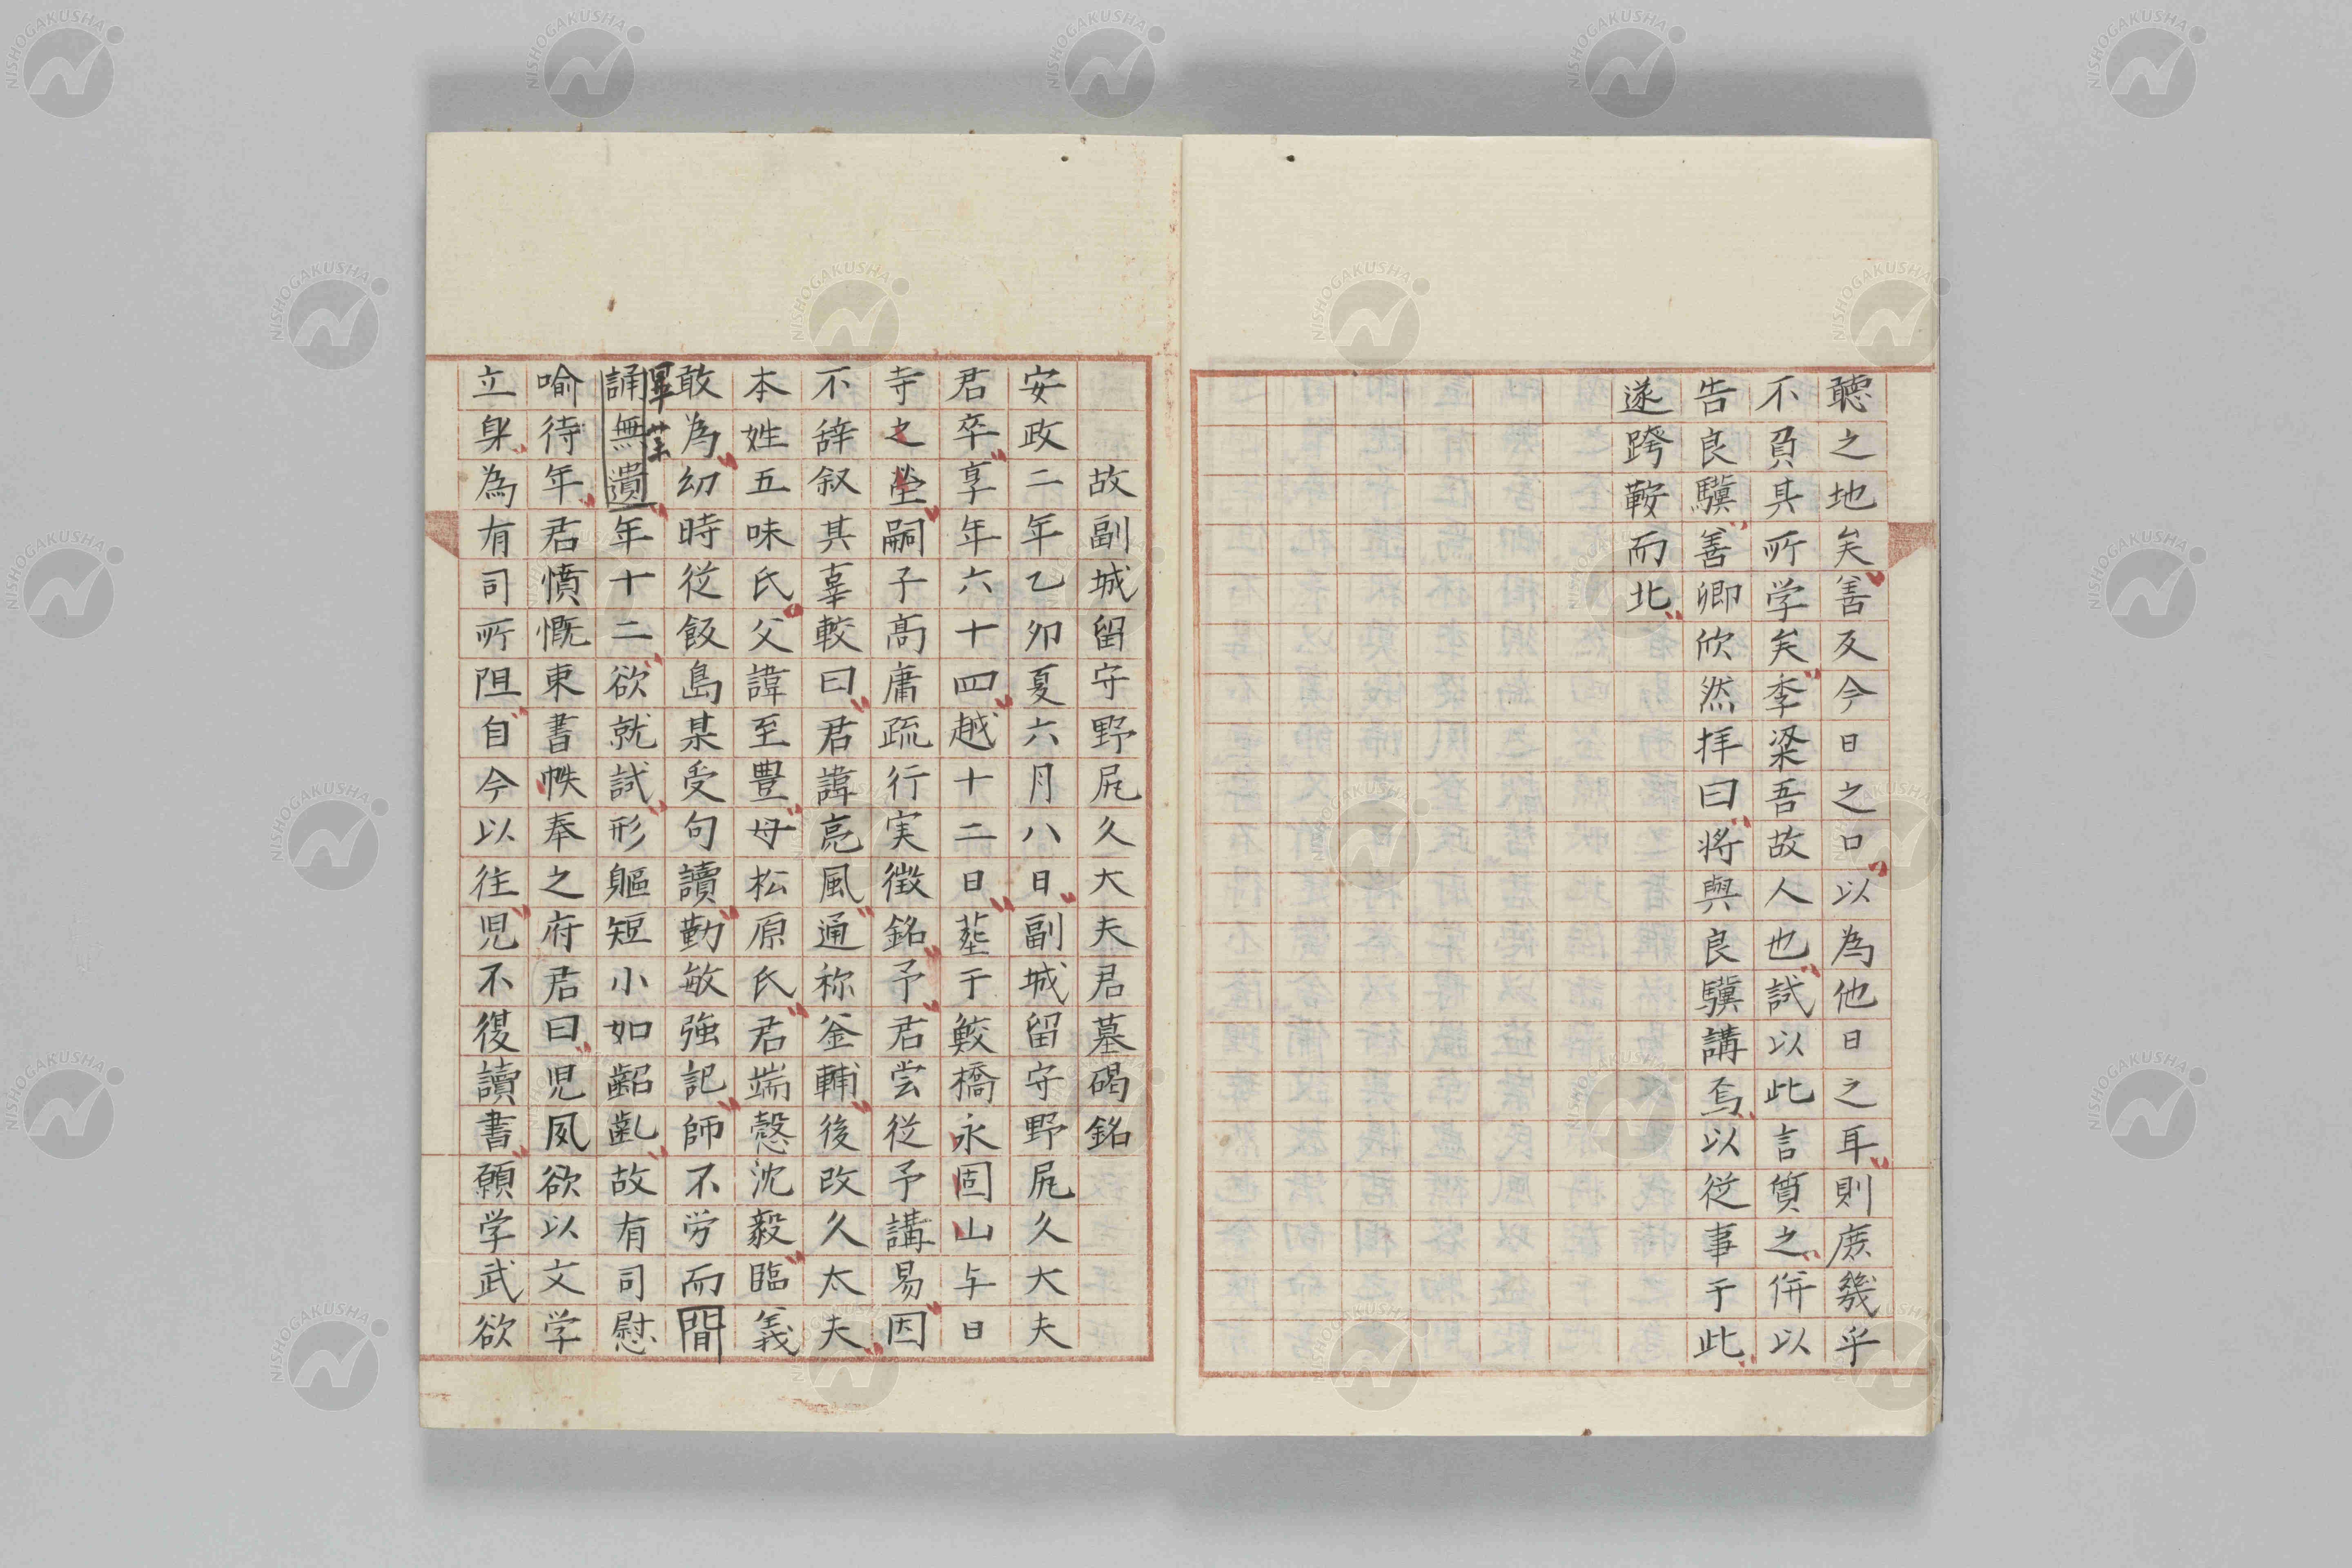 聴之地矣善反今日之口以為他日之耳則庶幾乎
不負其所学矣季梁吾故人也試以此言質之併以
告良驥善卿欣然拝曰将與良驥講焉以従事于此
遂跨鞍而北
故副城留守野尻久大夫君墓碣銘
安政二年乙卯夏六月八日副城留守野尻久大夫
君卒享年六十四越十二日葬于鮫橋永固山与日
寺之塋嗣子高庸疏行実徴銘予君嘗従予講易因
不辞叙其辜較曰君諱亮風通称釜輔後改久太夫
本姓五味氏父諱至豊母松原氏君端愨沈毅臨義
敢為幼時従飯島某受句讀勤敏強記師不労而間
畢業
誦無遺年十二欲就試形軀短小如齠齔故有司慰
喻待年君憤慨束書帙奉之府君曰児夙欲以文学
立身為有司所阻自今以往児不復讀書願学武欲
NISHOGAKUSHA